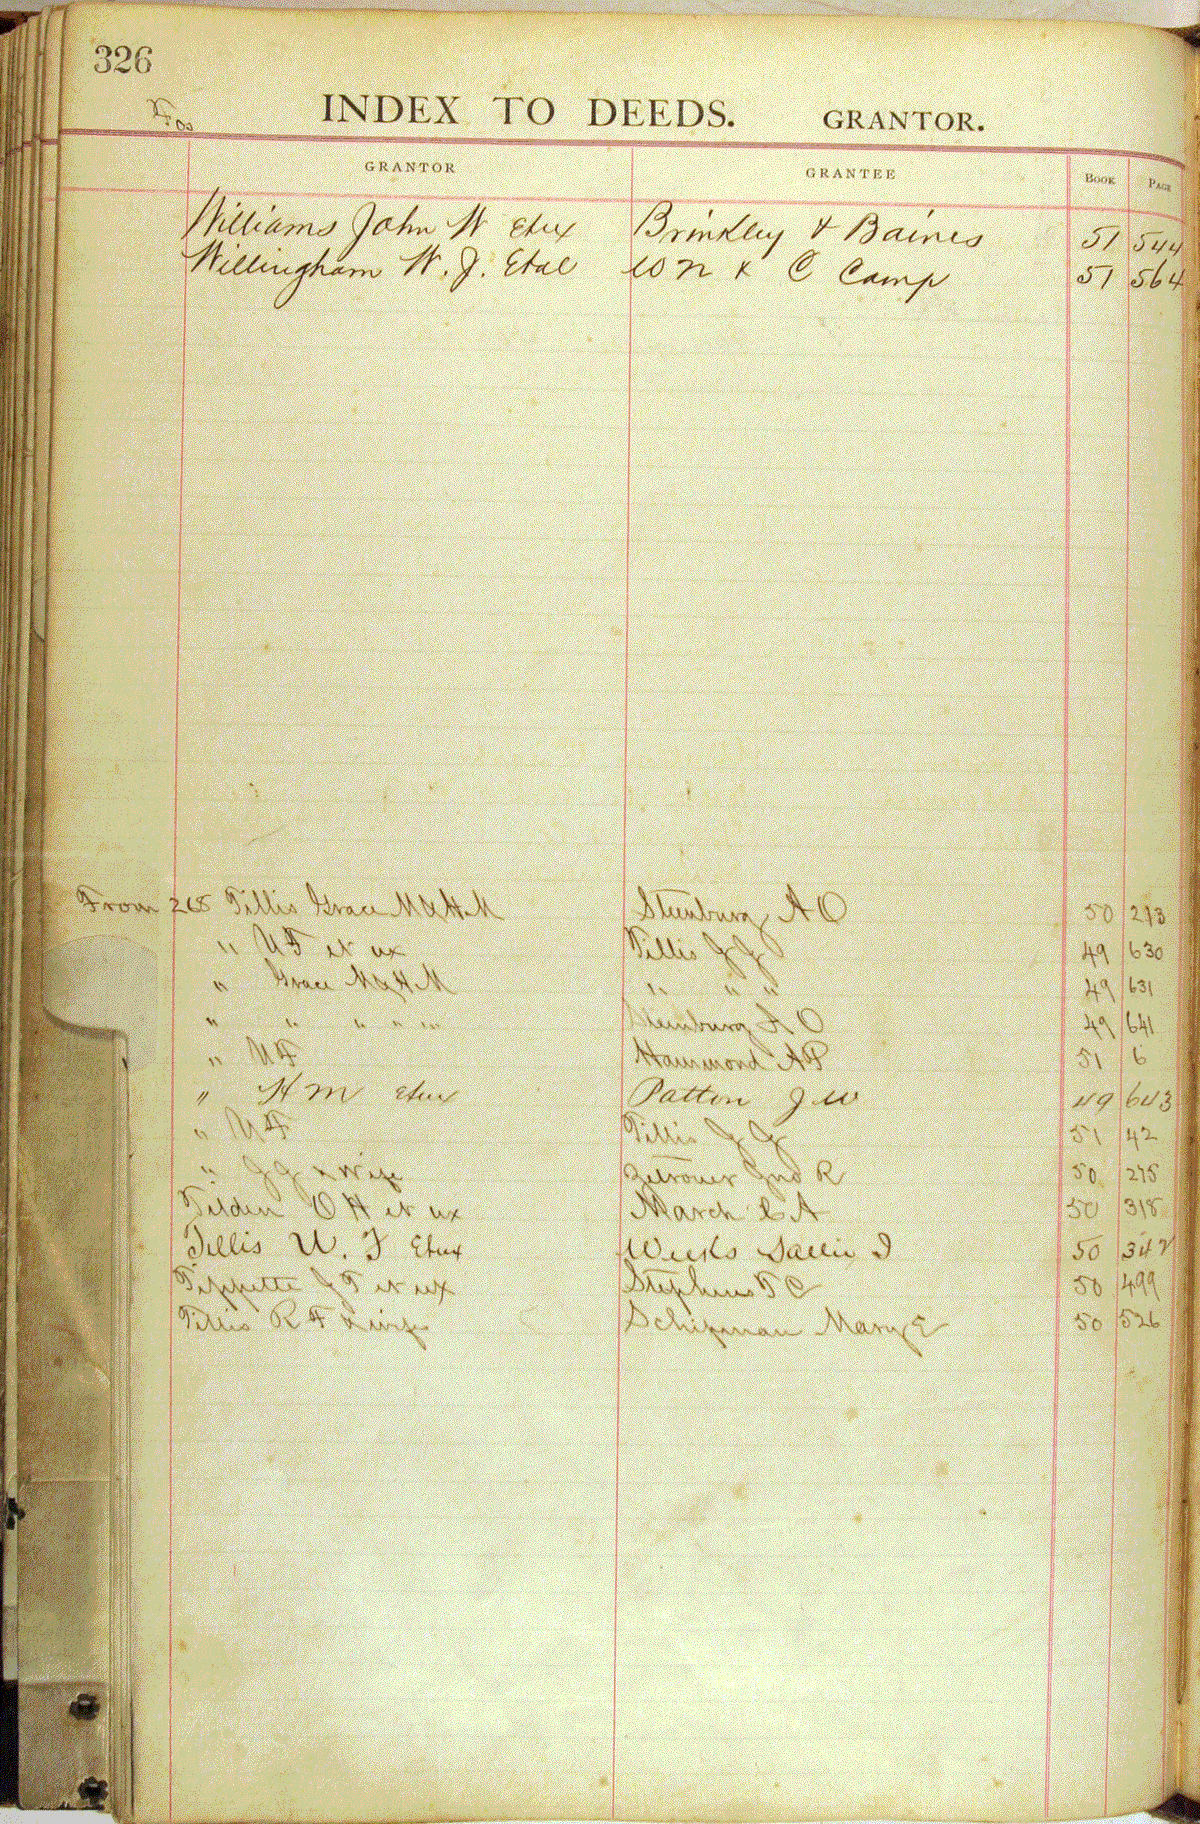 326
INDEX TO DEEDS. GRANTOR.
GRANTOR GRANTEE BOOK PAGE
Williams John W Etux Brinkley & Baines 51 544
Willingham W. J. Etal W N & C Camp 51 564
From 268 Tillis Grace M & H M Steenburg A O 50 213
" U F et ux Tillis J J 49 630
" Grace M & H M " " " 49 631
" " " " " Steenburg A O 49 641
" U F Hammond A P 51 6
" H M Etux Patton J W 49 643
" U F Tillis J J 51 42
" J J & Wife Zetrouer Jno R 50 275
Tilden O H et ux March C A 50 318
Tillis U. F Etux Weeks Sallie I 50 342
Tippette J T et ux Stephens T C 50 499
Tillis R F & wife Schipman Mary E 50 526